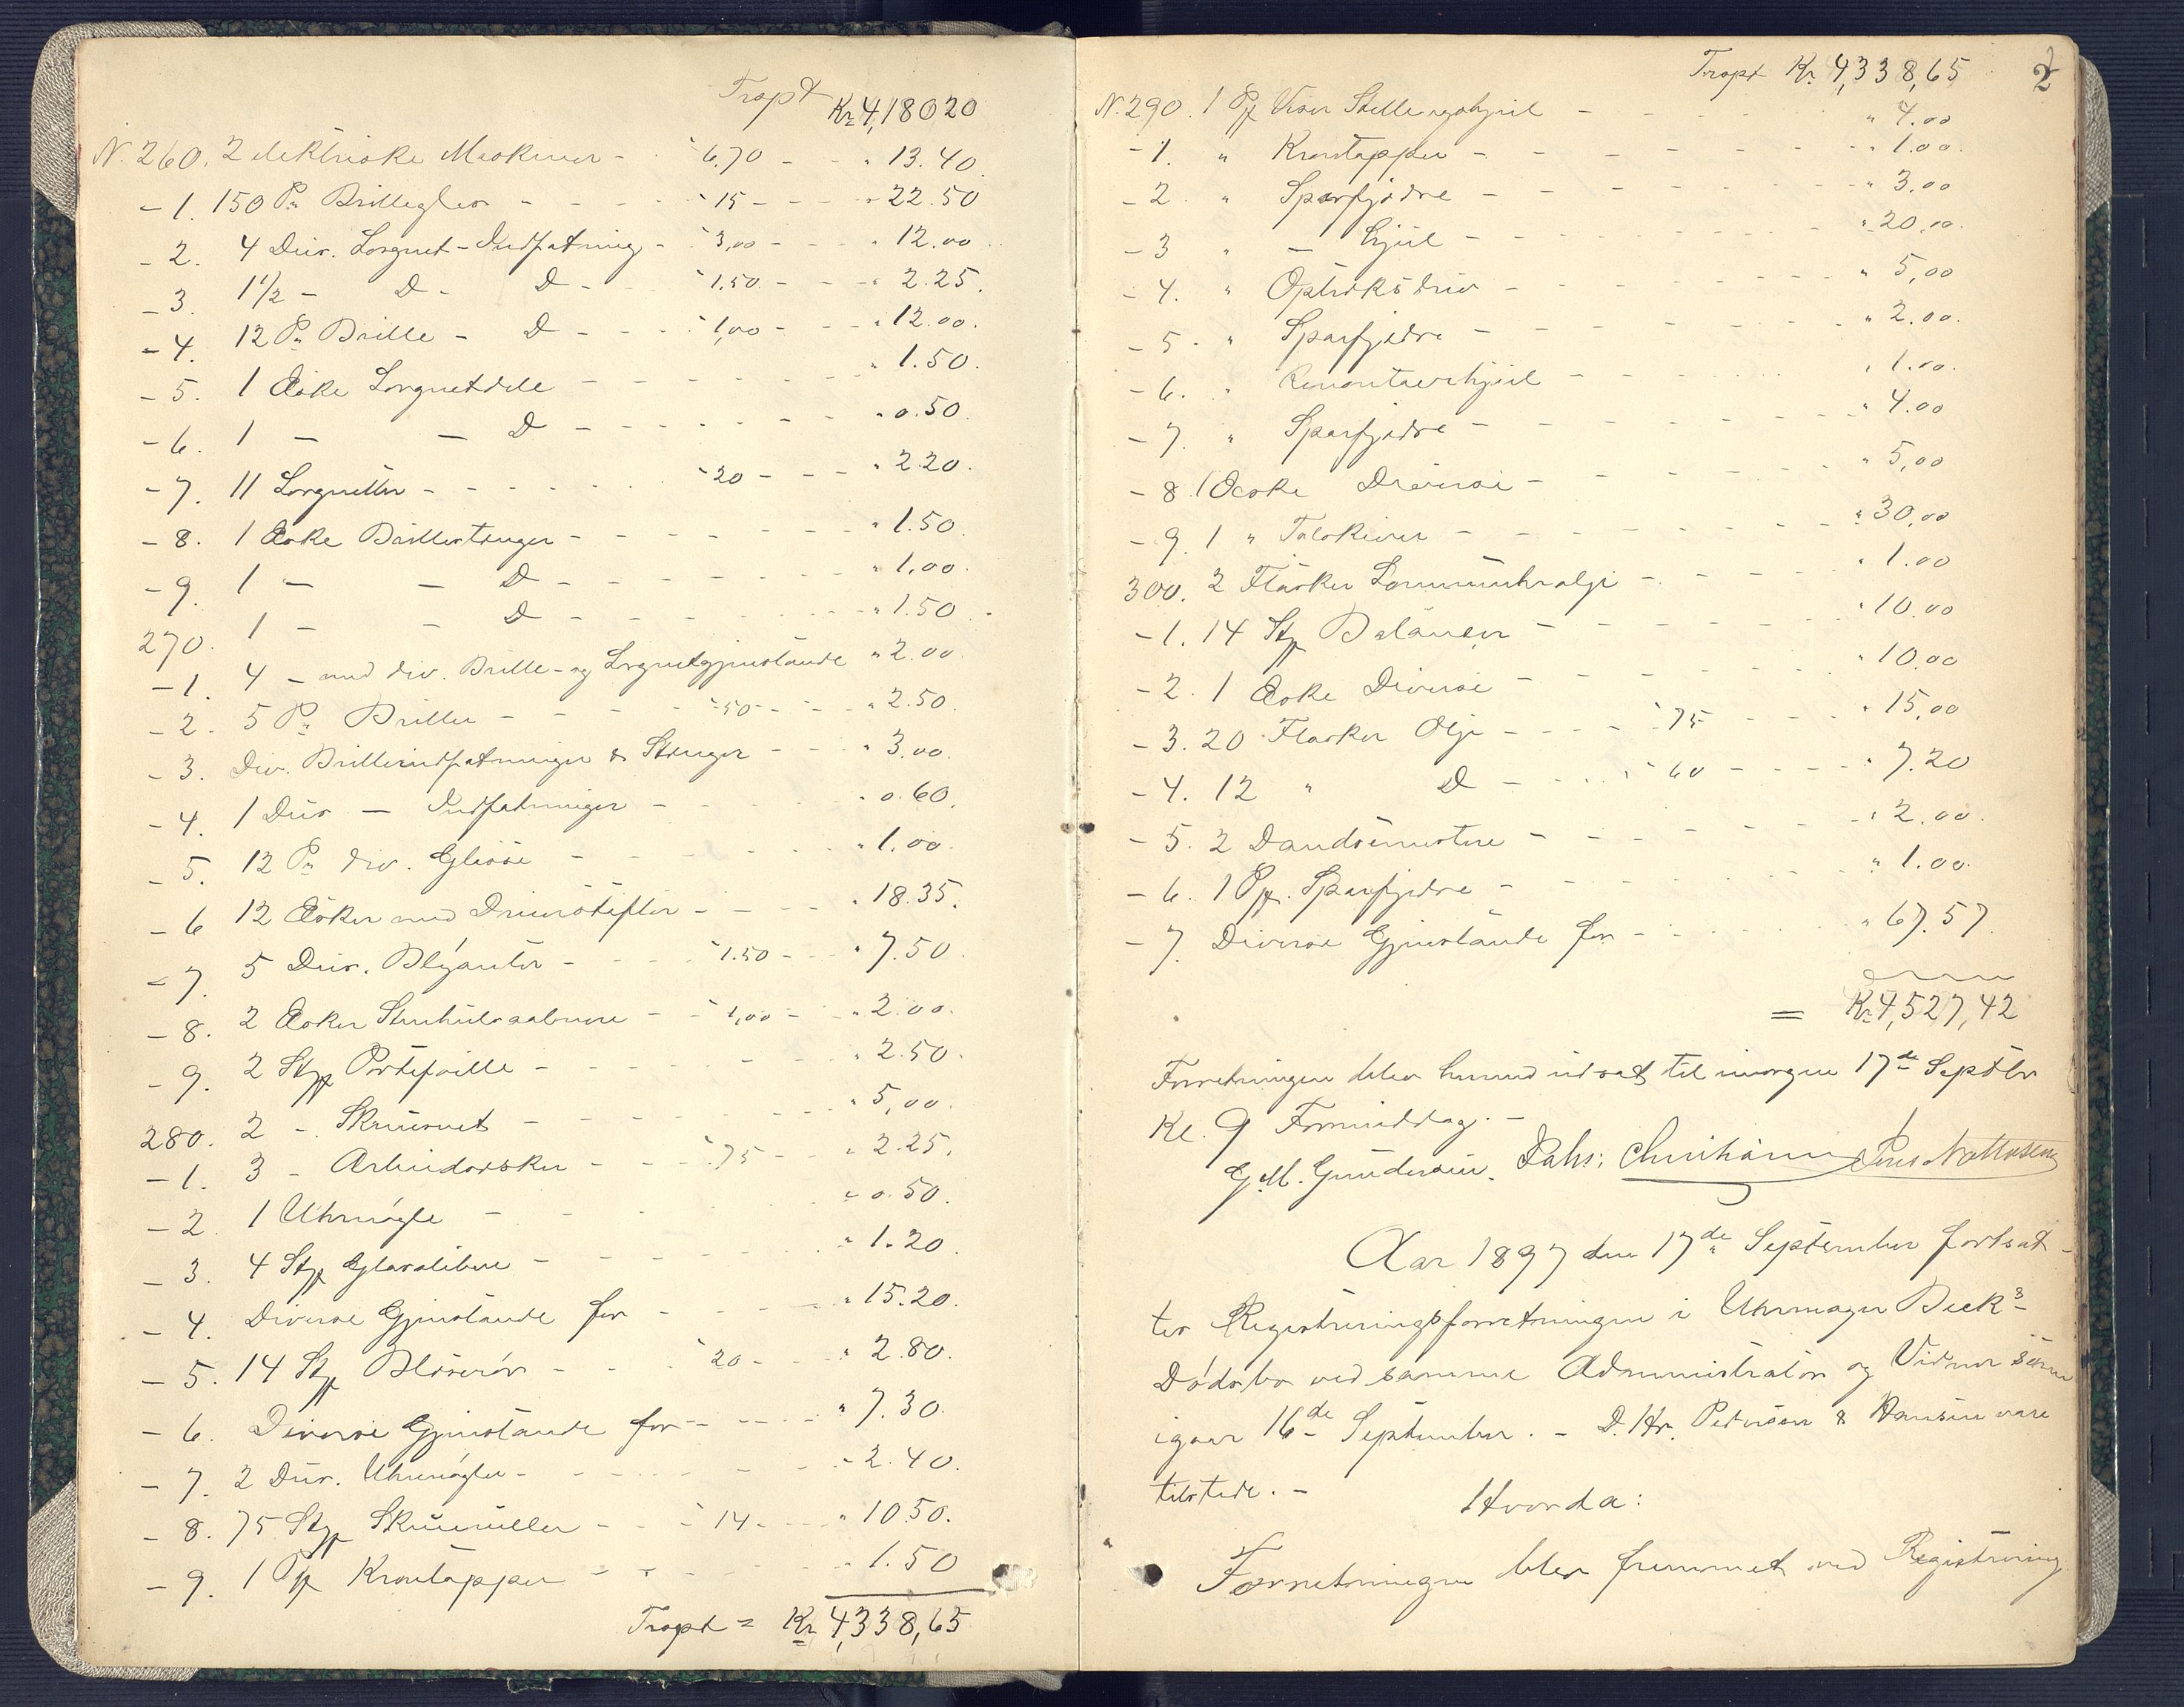 Trspt Kr 4,180 20
N. 260. 2 elektriske Maskiner - " 6.70 - " 13.40
- 1. 150 Pr Brilleglas - " 15 - " 22.50
- 2. 4 Dus. Lorgnet-Indfatning - " 3,00 - " 12.00
- 3. 1 1/2 - D - D - " 1.50 - " 2.25.
- 4. 12 Pr Brille - D - " 1,00 - " 12.00.
- 5. 1 Æske Lorgnetdele - " 1.50.
- 6. 1 - - D - " 0.50.
- 7. 11 Lorgnetter - " 20 - " 2.20.
- 8. 1 Æske Brillestænger - " 1.50.
- 9. 1 - - D - " 1,00.
270. 1 - - D - " 1.50.
- 1. 4 - med div. Brille- og Lorgnetgjenstande " 2.00
- 2. 5 Pr Briller - " 50 - " 2.50.
- 3. Div. Brilleindfatninger & Stænger - " 3.00.
- 4. 1 Dus - Indfatninger - " 0.60.
- 5. 12 Pr div. Glasse - " 1.00.
- 6 12 Æsker med - " 18.35.
- 7. 5 Dus. Blyanter - " 1.50 - " 7.50.
- 8. 2 Æsker - " 1,00 - " 2.00.
- 9. 2 Stp Portefoille - " 2.50.
280. 2 - - " 5,00.
- 1. 3 - - " 75 - " 2.25.
- 2. 1 Uhrnøgle - " 0.50.
- 3. 4 Stp - " 1.20.
- 4. Diverse Gjenstande for - " 15.20.
- 5. 14 Stp Blæserør - " 20 - " 2.80.
- 6. Diverse Gjenstande for - " 7.30.
- 7. 2 Dus. Uhrnøgler - " 2.40.
- 8. 75 Stp - " 14 - " 10.50.
- 9. 1 Pp Krontapper - " 1.50
Trspt = Kr 4,338,65
Trspt Kr 4,338,65 2
N. 290. 1 Pp Viser Stillingshjul - " 4.00
- 1. " Krontapper - " 1.00.
- 2. " Spærfjedre - " 3,00
- 3 " - hjul - " 20,00.
- 4. " Optræksdriv - " 5,00
- 5. " Spærfjedre - " 2.00.
- 6. " Remontoirhjul - " 1.00.
- 7. " Spærfjedre - " 4.00
- 8. 1 Æske Diverse - " 5,00
- 9. 1 " Talskiver - " 30,00
300. 2 Flasker Lommeuhrolje - " 1.00
- 1. 14 Stp Balancer - " 10.00
- 2. 1 Æske Diverse - " 10.00
- 3. 20 Flasker Olje - " 75 - " 15,00
- 4. 12 " D - " 60 - " 7.20
- 5. 2 - " 2.00.
- 6. 1 Pp. Spærfjedre - " 1.00.
- 7. Diverse Gjenstande for - " 67.57
= Kr 4,527,42
Forretningen blev herved udsat til imorgen 17de Septbr
Kl. 9 Formiddag. -
G. M. Gundersen. Jahs: Christiansen Jens Mathisen
Aar 1897 den 17de September fortsat-
tes Registreringsforretningen i Uhrmager Beck's
Dødsbo ved samme Administrator og Vidner som
igaar 16de September. - D. Hr. Pedersen & Hansen vare
tilstede. -
Hvorda:
Forretningen blev fremmet ved Registrering